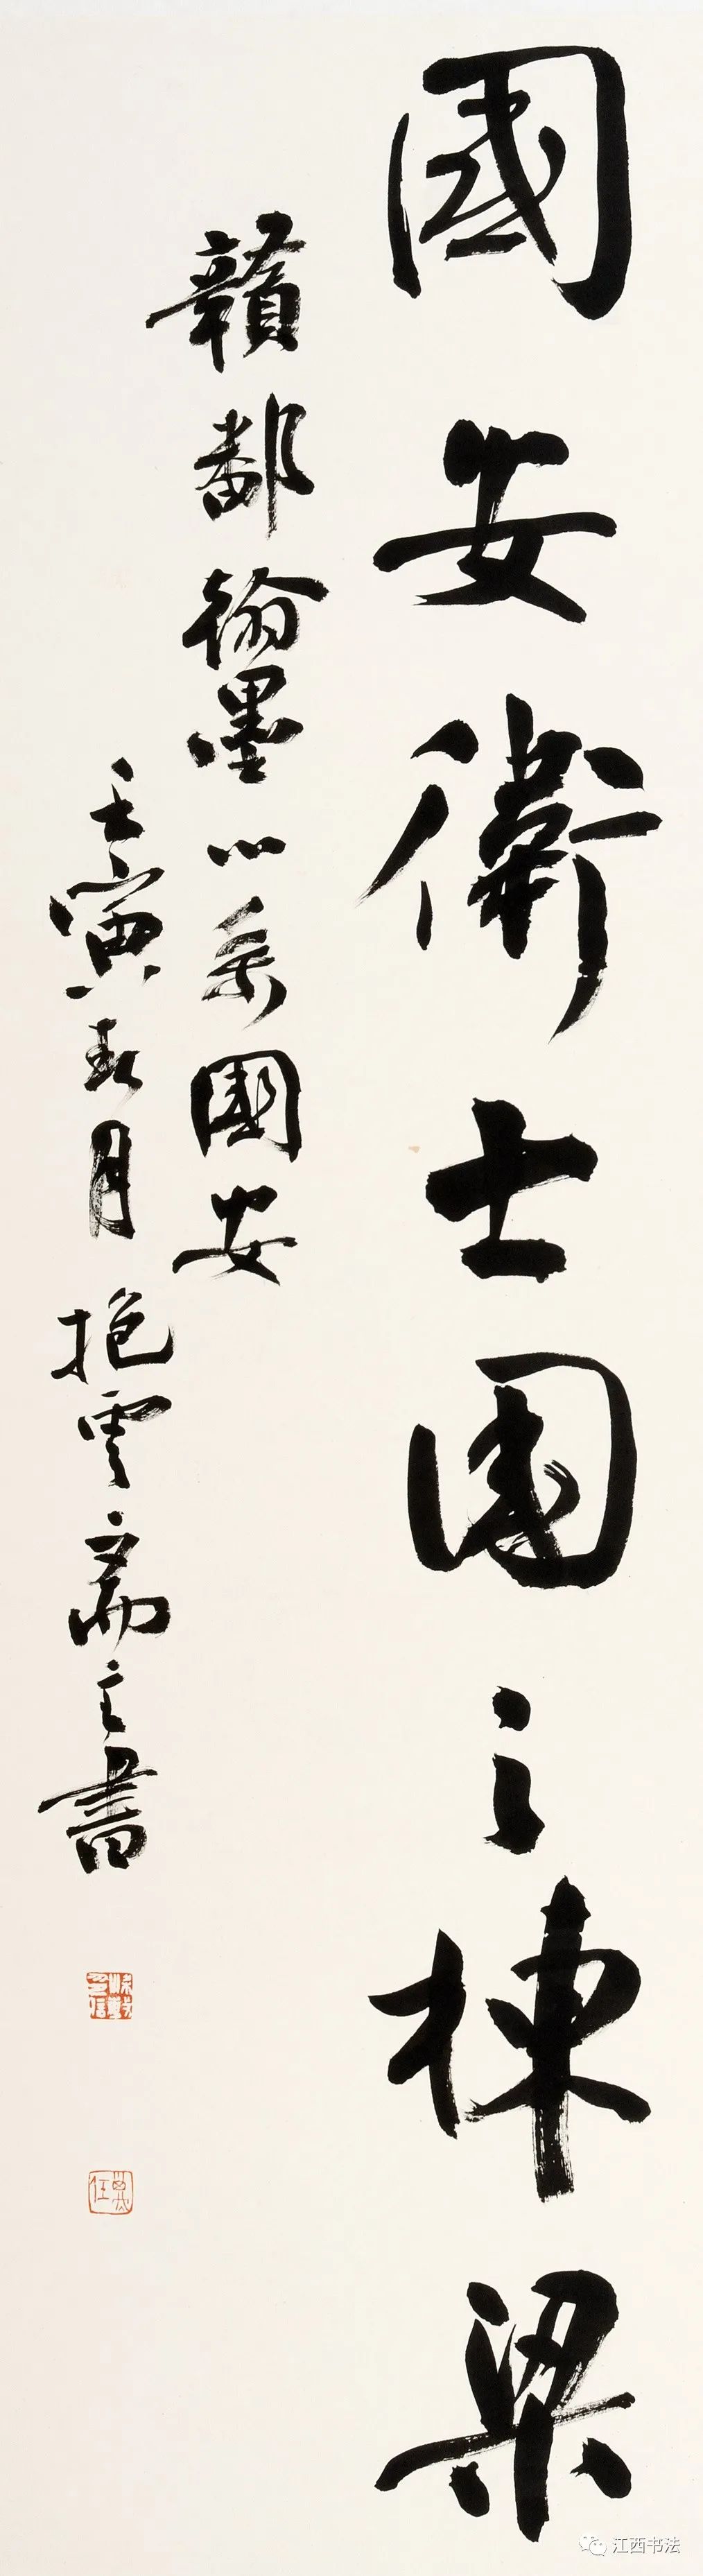 國安衛士國之棟梁
贛鄱翰墨心系國安
壬寅春月抱雲齋主書
江西书法